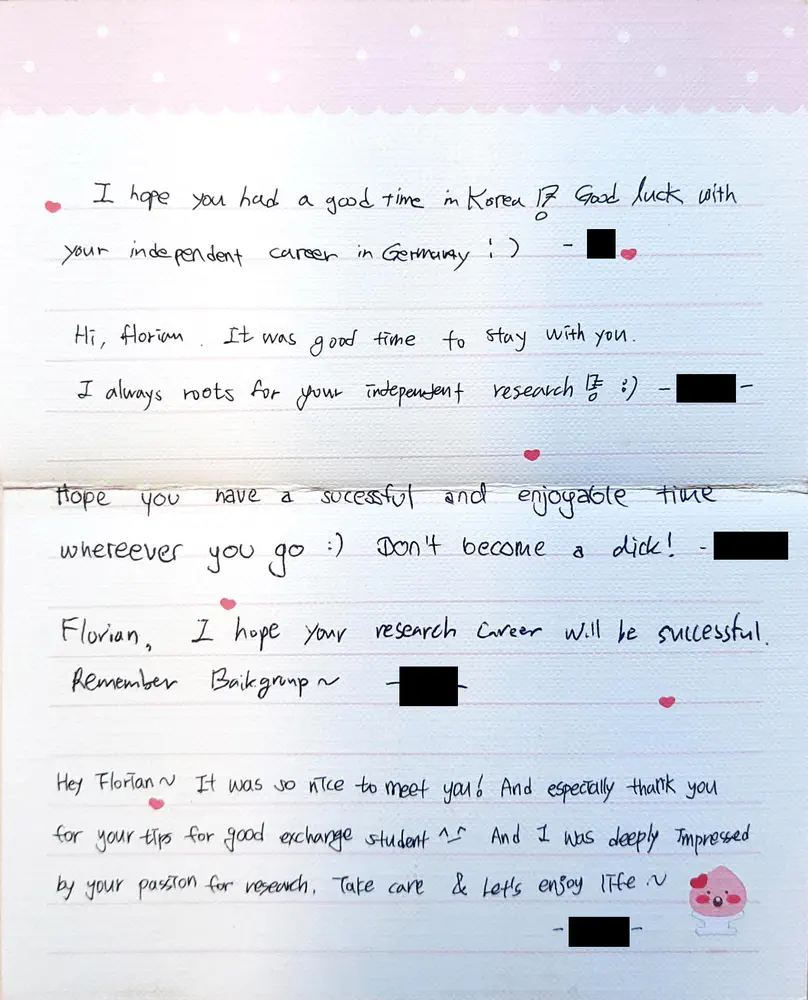 I hope you had a good time in Korea!? Good luck with
your independent career in Germany :) -
Hi, florian. It was good time to stay with you.
I always roots for your independent research!! :) - -
Hope you have a sucessful and enjoyable time
whereever you go :) Don't become a dick! -
Florian, I hope your research career will be successful.
Remember Baikgroup ~ - -
Hey Florian~ It was so nice to meet you! And especially thank you
for your tips for good exchange student ^-^ And I was deeply impressed
by your passion for research. Take care & Let's enjoy life ~
- -